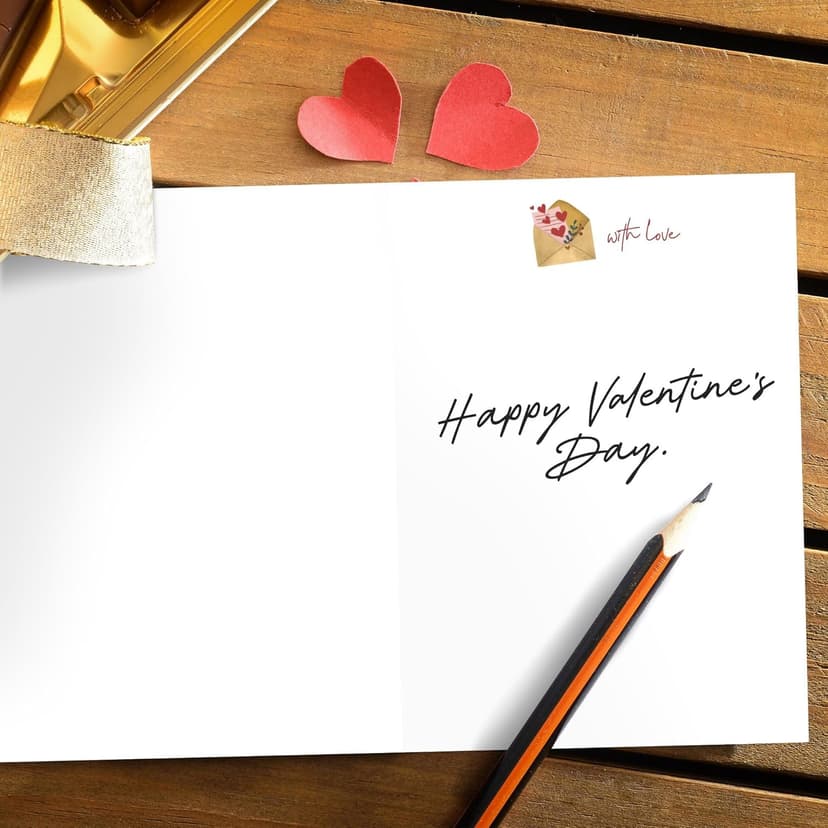 with love
Happy Valentine's
Day.